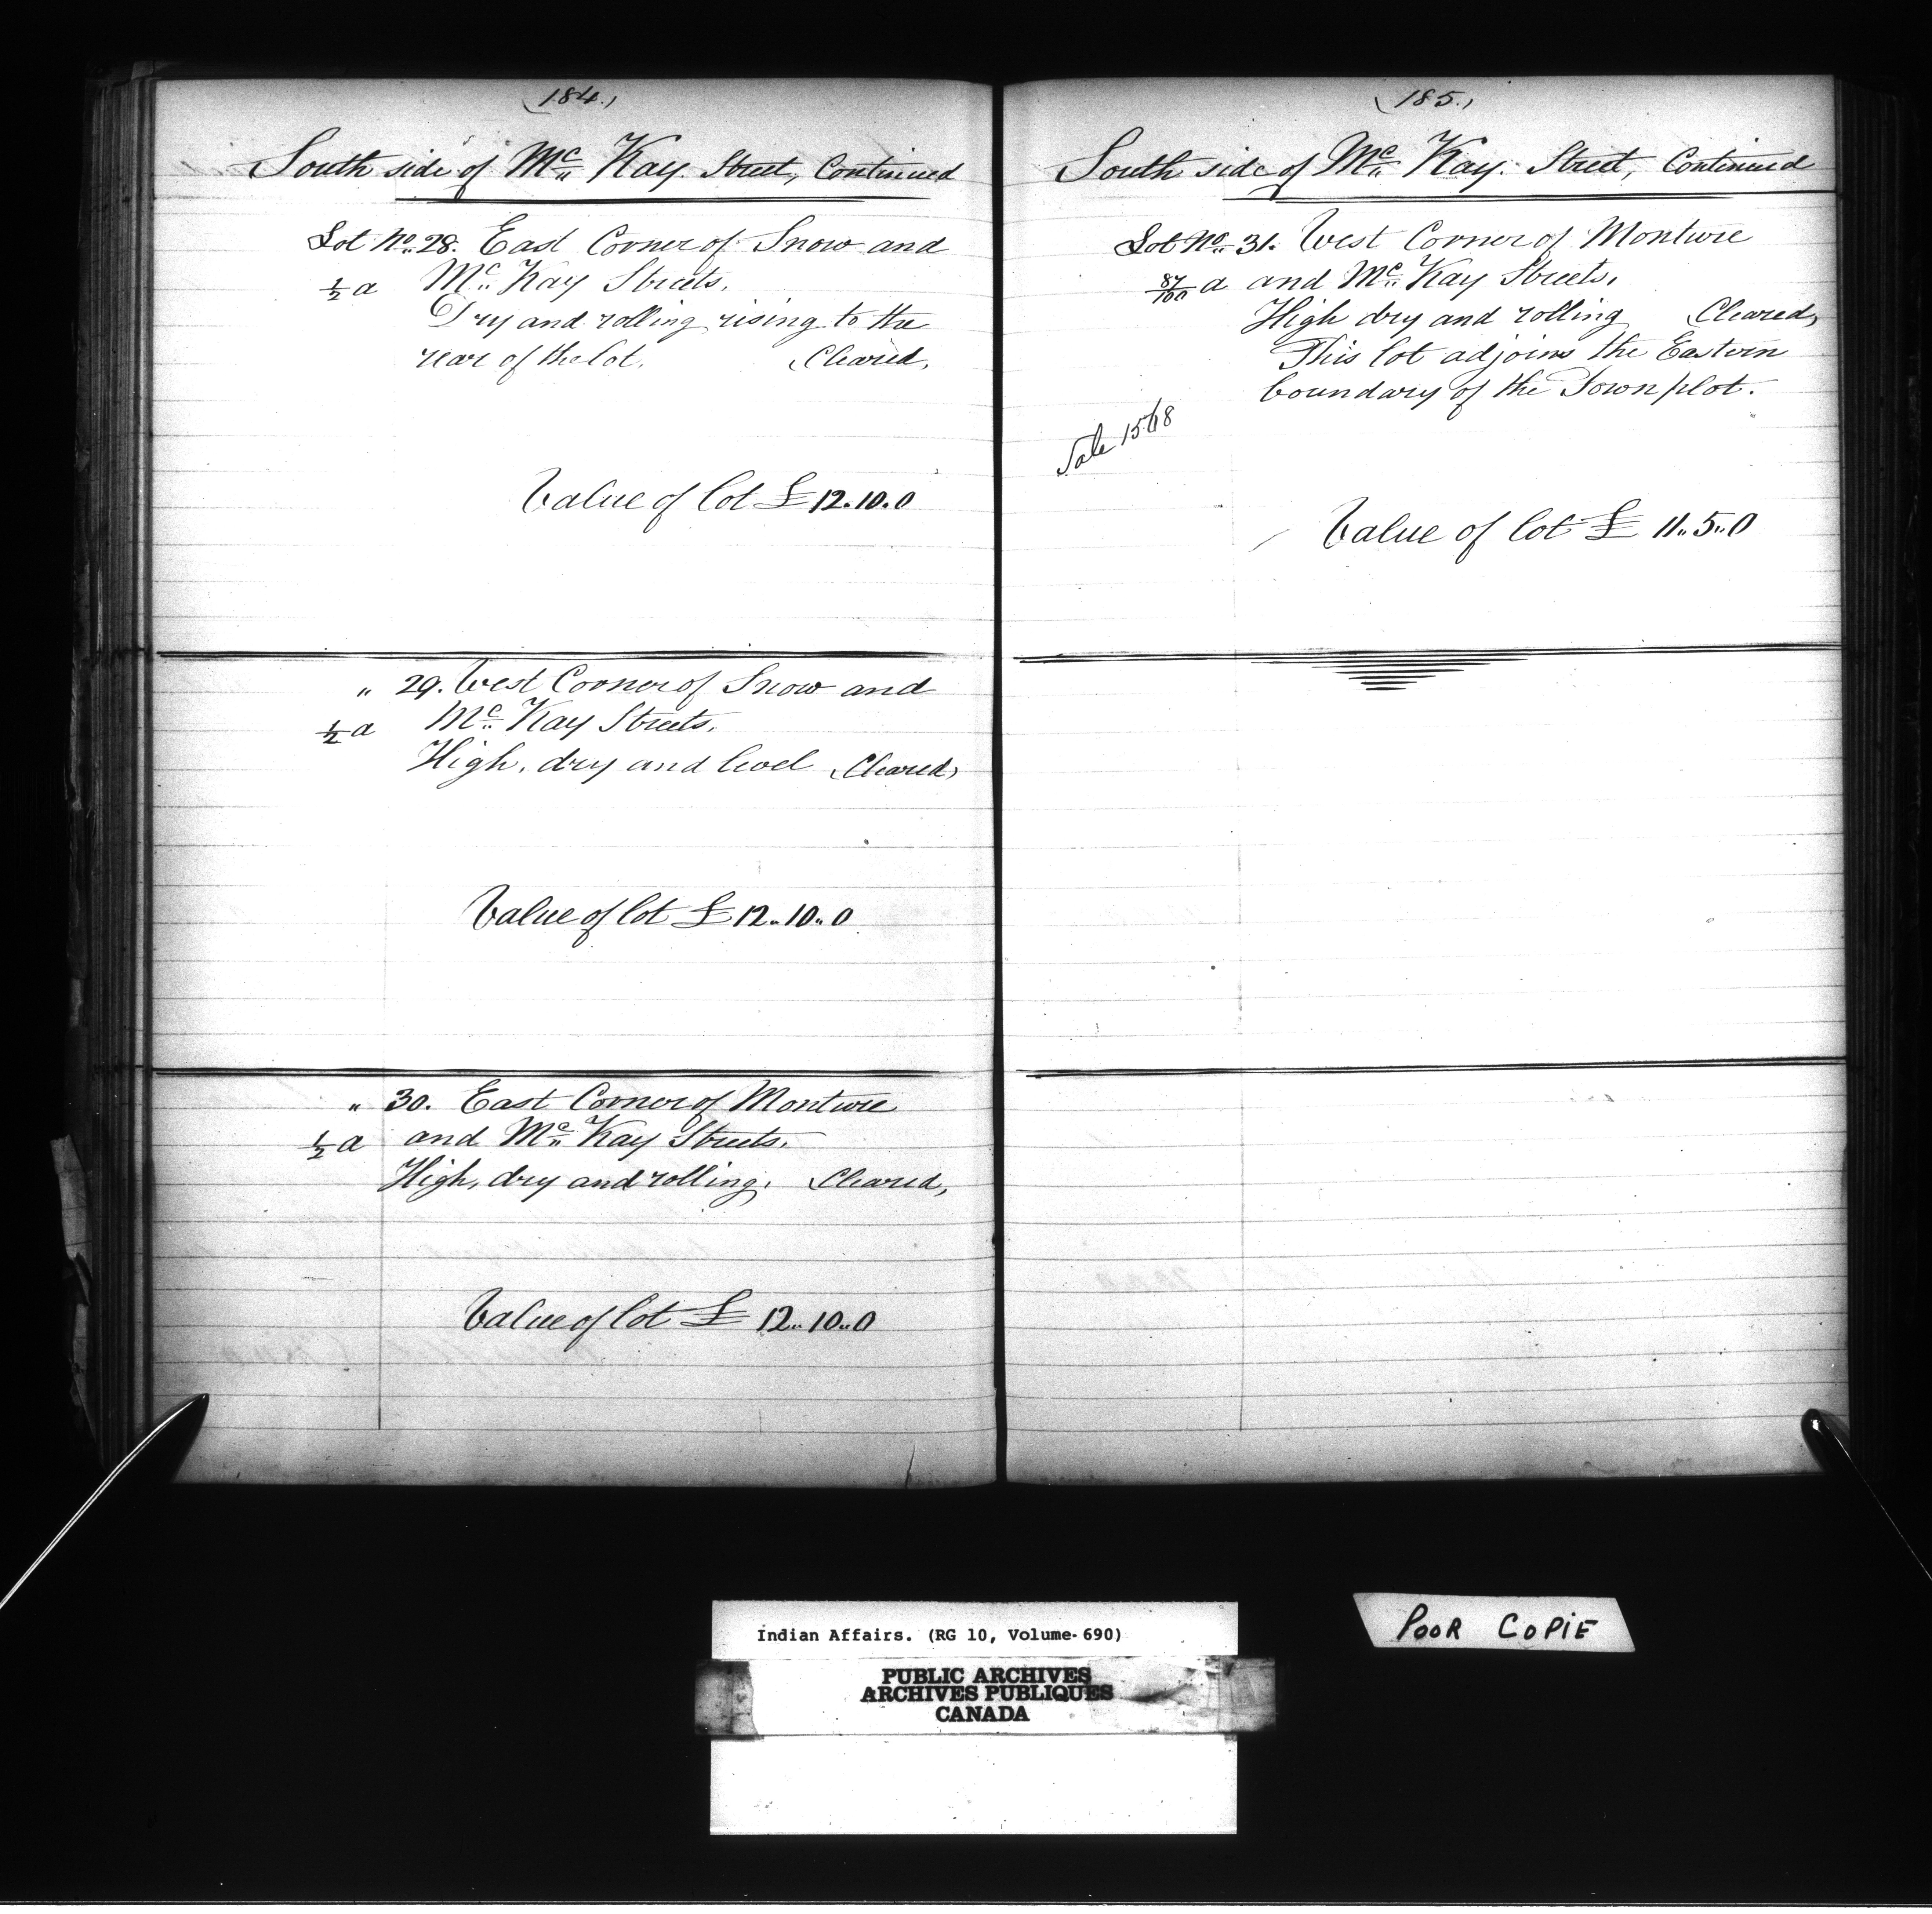 (184.)
South side of Mc Kay Street, Continued
Lot No. 28. East Corner of Snow and
1/2 a Mc Kay Streets.
Dry and rolling rising to the
rear of the lot. (Cleared)
Value of lot £ 12.10.0
" 29. West Corner of Snow and
1/2 a Mc Kay Streets.
High, dry and level (Cleared)
Value of lot £ 12.10.0
" 30. East Corner of Monture
1/2 a and Mc Kay Streets.
High, dry and rolling. (Cleared)
Value of lot £ 12.10.0
(185.)
South side of Mc Kay Street, Continued
Lot No. 31. West Corner of Monture
87/100 a and Mc Kay Streets.
High dry and rolling (Cleared)
This lot adjoins the Eastern
boundary of the Town plot.
Sale 1568
Value of lot £ 11.5.0
Indian Affairs. (RG 10, Volume 690)
PUBLIC ARCHIVES
ARCHIVES PUBLIQUES
CANADA
POOR COPIE